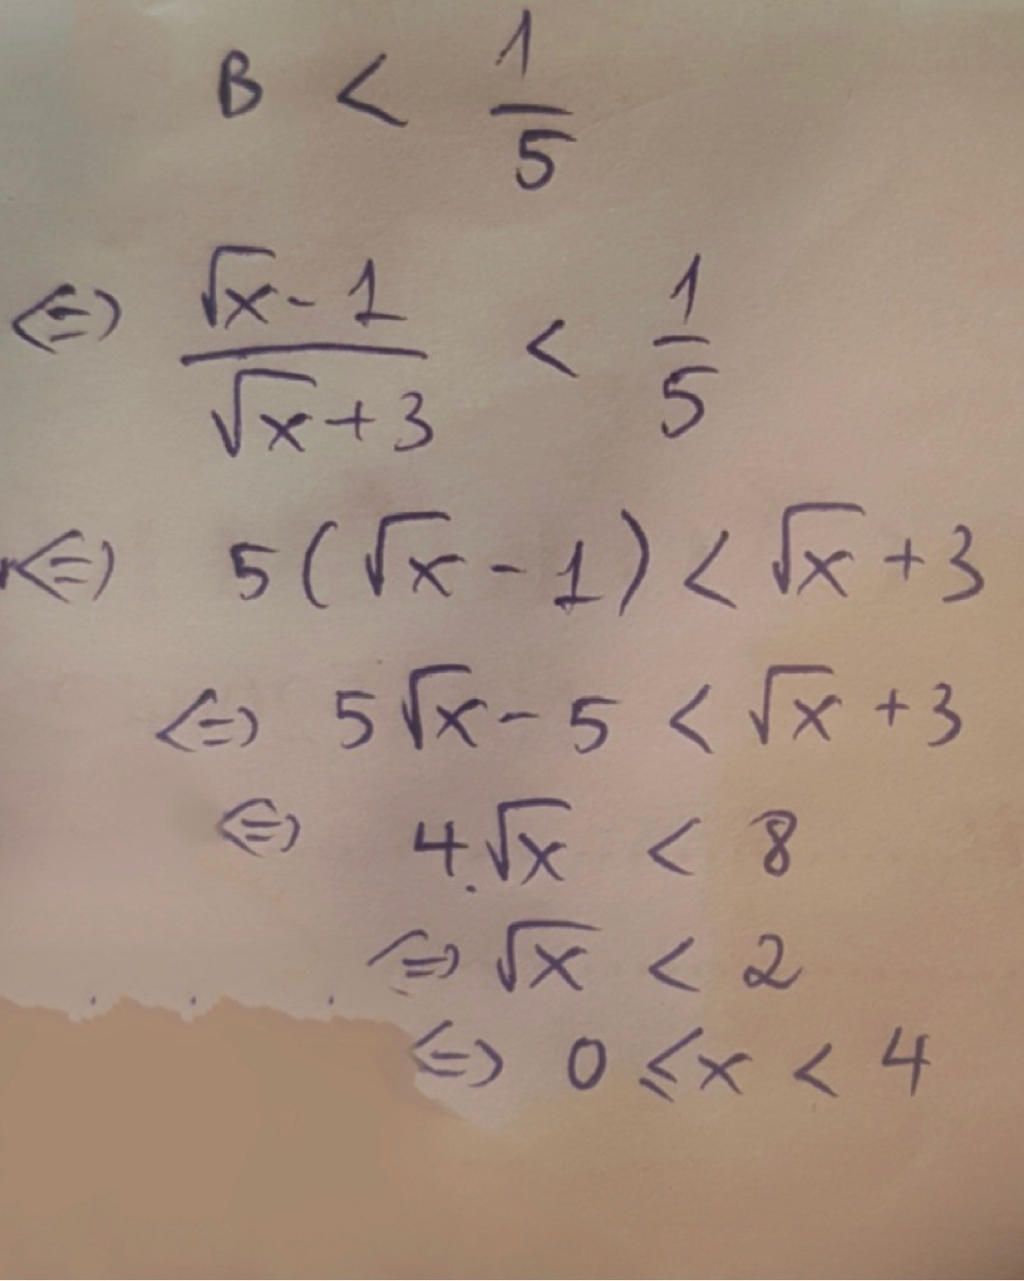 B < 1/5
⇔ (√x - 1)/(√x + 3) < 1/5
⇔ 5(√x - 1) < √x + 3
⇔ 5√x - 5 < √x + 3
⇔ 4.√x < 8
⇔ √x < 2
⇔ 0 ≤ x < 4